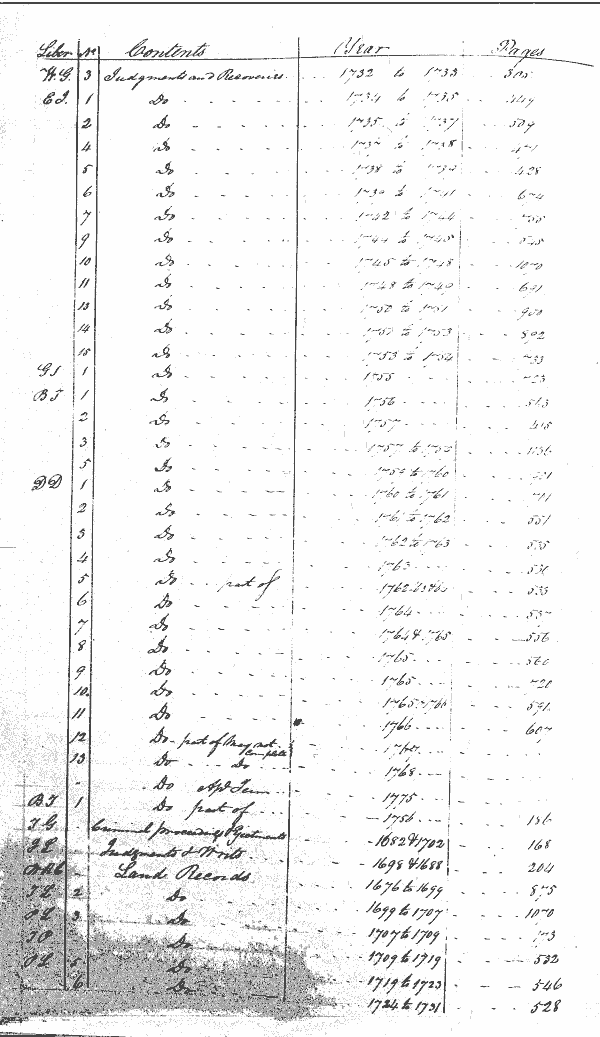 Liber No Contents Year Pages
W.G. 3 Judgments and Recoveries 1732 to 1733 505
E.I. 1 Do 1734 to 1735 449
2 Do 1735 to 1737 509
4 Do 1737 to 1738 471
5 Do 1738 to 1739 428
6 Do 1739 to 1741 674
7 Do 1742 to 1744 755
9 Do 1744 to 1745
10 Do 1745 to 1748 1070
11 Do 1748 to 1749 691
13 Do 1750 to 1751 900
14 Do 1751 to 1753 892
15 Do 1753 to 1754 733
GS 1 Do 1755 723
BT 1 Do 1756 563
2 Do 1757 415
3 Do 1757 to 1136
5 Do to 1760
DD 1 Do 1760 to 1761 711
2 Do 1761 to 1762 551
3 Do 1762 to 1763 535
4 Do 1763 536
5 Do part of 1762 533
6 Do 1764 537
7 Do 1764 & 1765 556
8 Do 1765 560
9 Do 1765 720
10 Do 1765 & 1766 591
11 Do 1766 607
12 Do part of May not complete
13 Do Do 1768
Do Apl Term 1775
BT 1 Do part of 1756 186
T G Criminal proceedings 1682 & 1702 168
Judgments & Writs 1698 & 1688 204
Land Records 1676 to 1699 875
2 Do 1699 to 1707 1070
3 Do 1707 to 1709 173
Do 1709 to 1719 532
5 Do 1719 to 1723 546
6 Do 1724 to 1731 528